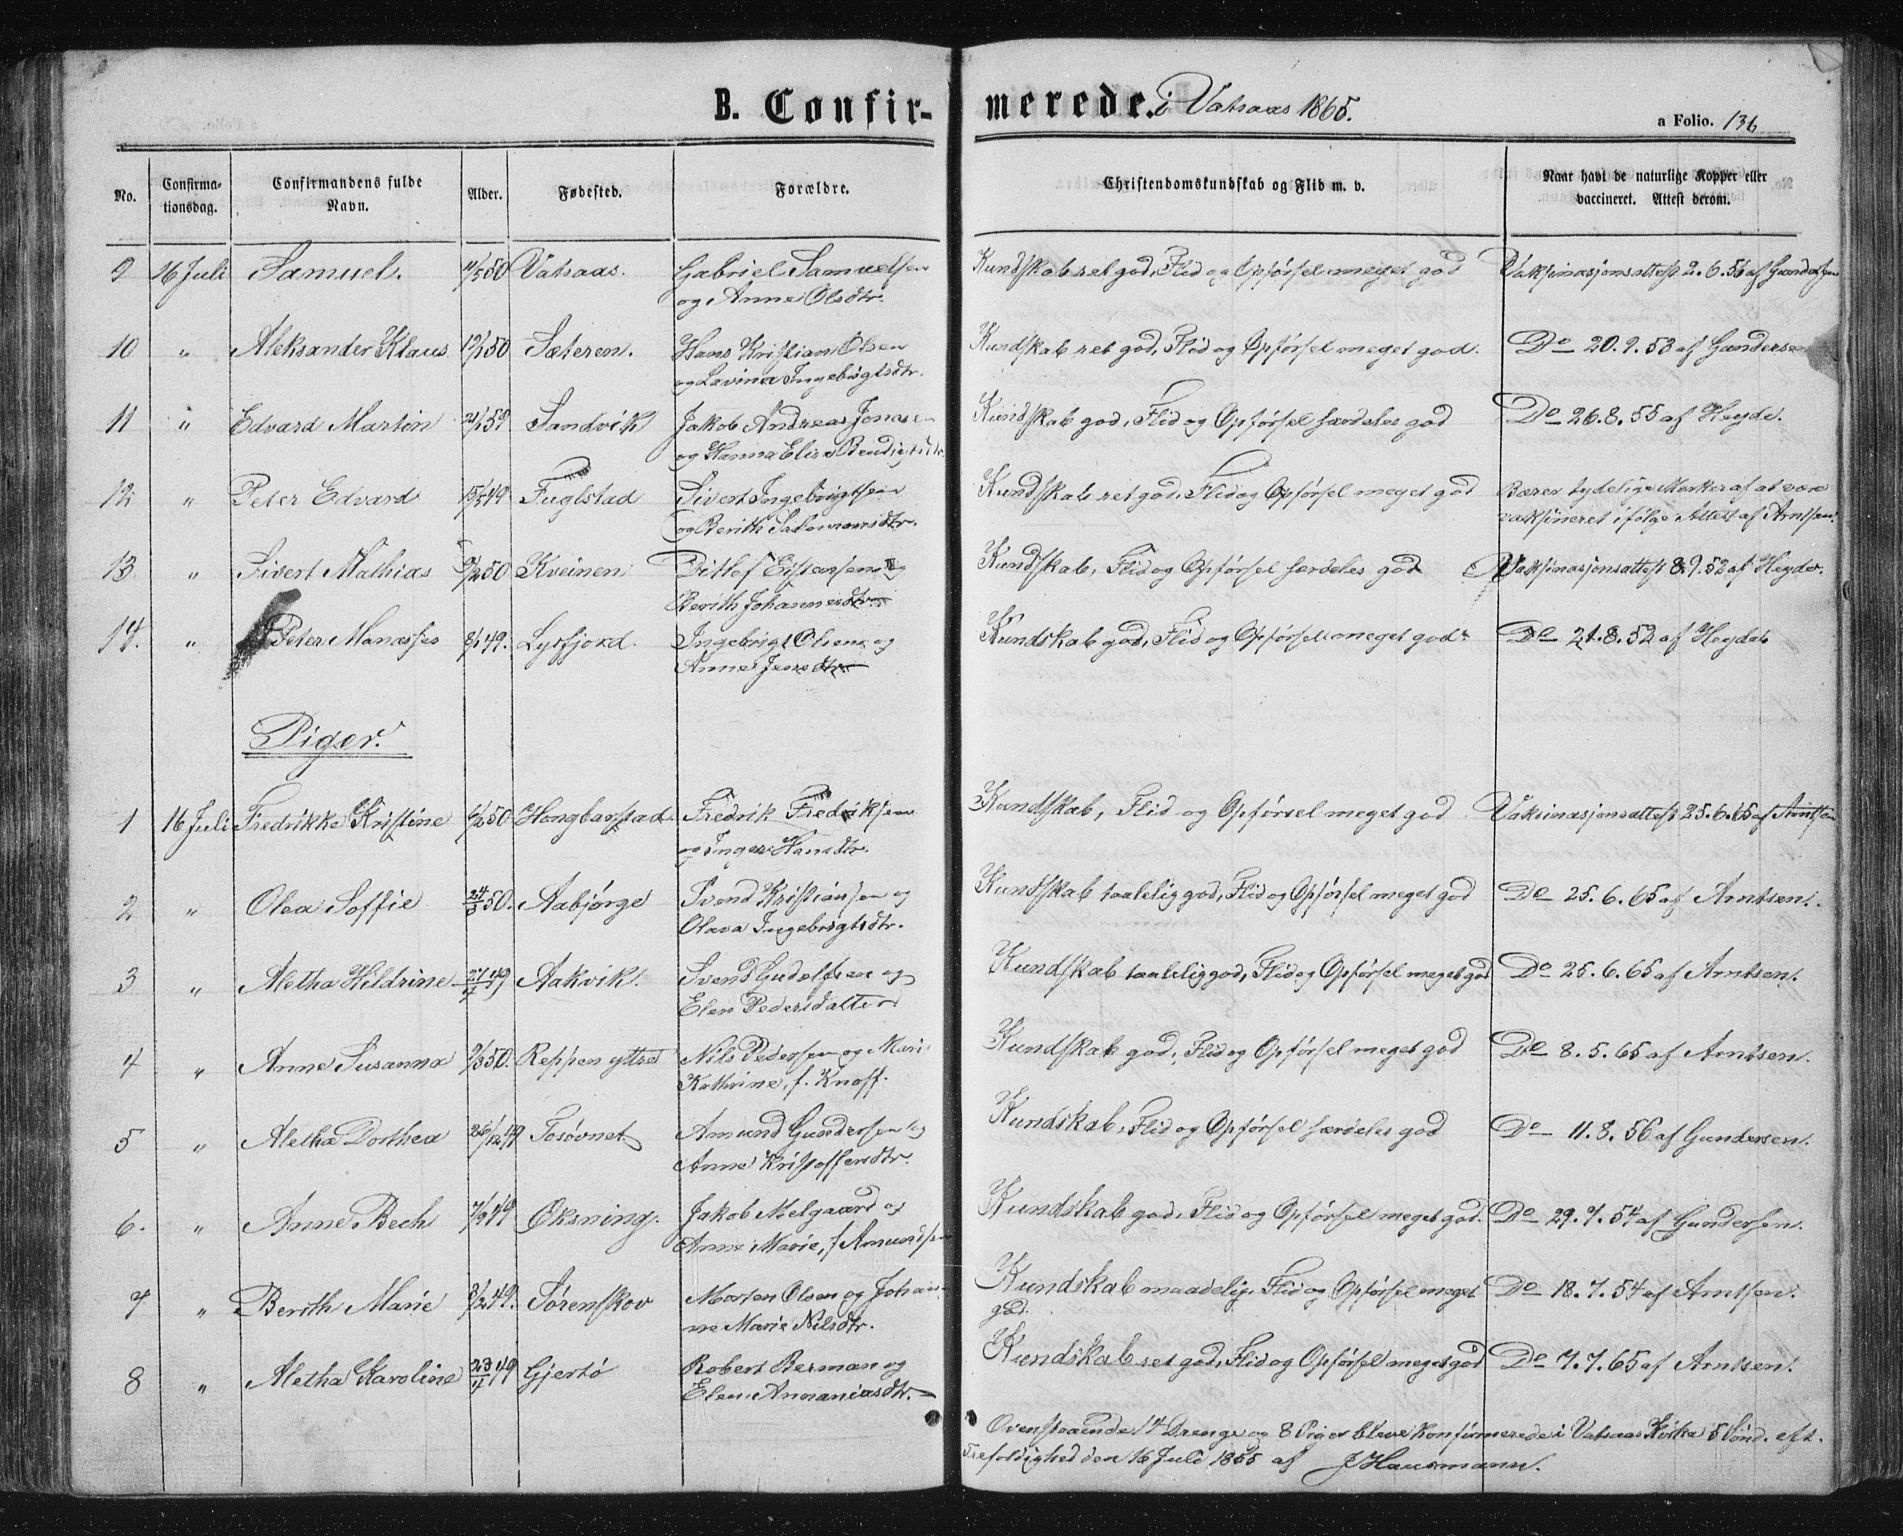 B. Confirmerede. i Vatsaas 1865.
a Folio. 136
No. Confirmationsdag. Confirmandens fulde Navn. Alder. Fødested. Forældre. Christendomskundskab og Flid m. v. Naar havt de naturlige Kopper eller vaccineret. Attest derom.
9 16 Juli Samuel. 4/5 50 Vatsaas. Gabriel Samuelsen Kundskab ret god, Flid og Opførsel meget god Vaksinasjonsattest 2.6.56 af Gundersen
og Anne Olsdtr.
10 " Aleksander Klaus 50 Sæteren. Hans Kristian Olsen Kundskab ret god, Flid og Opførsel meget god. Do 20.9.53 af Gundersen
og Lavina Ingebrigtsdtr.
11 " Edvard Martin Sandvik Jakob Andreas Jonase- Kundskab god, Flid og Opførsel særdeles god Do 26.8.55 af Heyde.
og Hanna Elise Bendigtsdtr.
12 " Peter Edvard 15/5 49 Fuglstad Sivert Ingebrigtsen Kundskab ret god, Flid og Opførsel meget god Bærer tydelige Mærker af at være
og Berith Salomonsdtr. vaksineret ifølge Attest af Arntsen.
13 " Sivert Mathias /2 50 Kveinen Ditlef Eistensen og Kundskab, Flid og Opførsel særdeles god Vaksinasjonsattest 8.9.52 af Heyde.
Berith Johannesdtr.
14. " Peter Manasses 8/1 49. Lysfjord. Ingebrigt Olsen og Kundskab god, Flid og Opførsel meget god. Do 21.8.52 af Heyde.
Anne Jensdtr.
Piger.
1 16 Juli Fredrikke Kristine 6/2 50. Hongbarstad. Fredrik Fredriksen Kundskab, Flid og Opførsel meget god Vaksinasjonsattest 25.6.65 af Arntsen
og Inger Hansdtr.
2 " Olea Soffie 24/3 50. Aabjørge Svend Kristiansen og Kundskab taalelig god, Flid og Opførsel meget god Do 25.6.65 af Arntsen.
Olava Ingebrigtsdtr.
3 " Aletha Hildrine 27/4 49 Aakvik. Svend Gudolfsen og Kundskab taalelig god, Flid og Opførsel meget god Do 25.6.65 af Arntsen.
Elen Pedersdatter
4 " Anne Susanna 9/3 50. Reppen yttre Nils Pedersen og Mari Kundskab god, Flid og Opførsel meget god Do 8.5.65 af Arntsen.
Kathrine, f. Knoff.
5 " Aletha Dorthea 26/12 49 Tosøvnet Amund Gundersen og Kundskab, Flid og Opførsel særdeles god Do 11.8.56 af Gundersen.
Anne Kristoffersdtr.
6. " Anne Bech 7/9 49 Oksning. Jakob Melgaard og Kundskab god, Flid og Opførsel meget god. Do 29.7.54 af Gundersen.
Anne Marie, f Amundsen
7 " Berith Marie 3/2 49. Sørenskov Morten Olsen og Johan- Kundskab maadelig, Flid og Opførsel meget Do 18.7.54 af Arntsen.
ne Marie Nilsdtr. god.
8 " Aletha Karoline 23/4 49 Gjertø Robert Berman og Kundskab ret god, Flid og Opførsel meget god Do 7.7.65 af Arntsen.
Elen Annaniasdtr.
Ovenstaaende 14 Drenge og 8 Piger bleve konfirmerede i Vatsaas Kirka 5 Sønd. eft.
Trefoldighed den 16 Juli 1865 af J Hausmann.